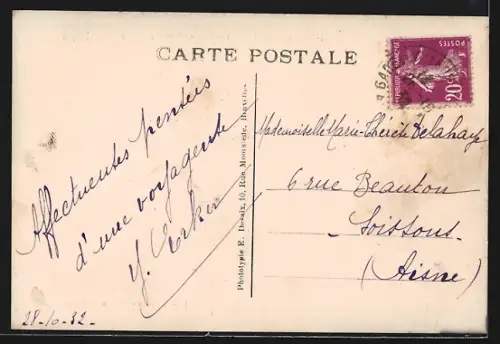 CARTE POSTALE
POSTES
REPUBLIQUE FRANÇAISE
20c
Affectueuses pensées
d'une voyageuse
Y.
28-10-32-
Phototypie E. Desaix, 10, Rue
Mademoiselle Marie-Thérèse Delahaye
6 rue
Soissons
(Aisne)